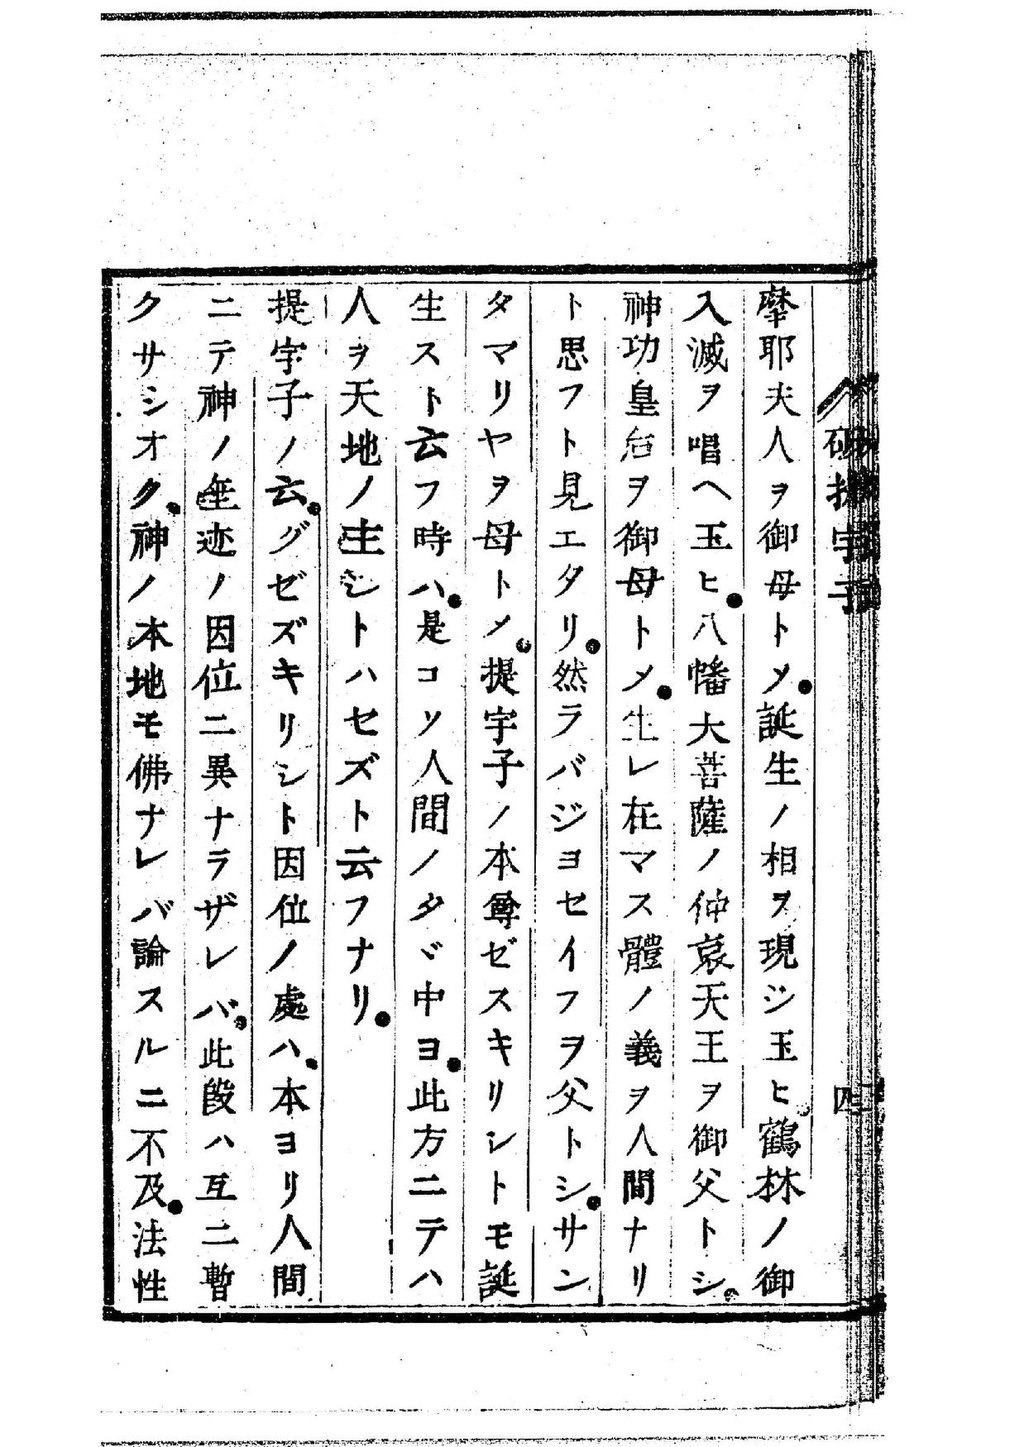 破提宇子
四
摩耶夫人ヲ御母トメ。誕生ノ相ヲ現ジ玉ヒ鶴林ノ御
入滅ヲ唱ヘ玉ヒ。八幡大菩薩ノ仲哀天王ヲ御父トシ。
神功皇后ヲ御母トメ。生レ在マス體ノ義ヲ人間ナリ
ト思フト見エタリ。然ラバジヨセイフヲ父トシ。サン
タマリヤヲ母トメ。提宇子ノ本尊ゼスキリシトモ誕
生スト云フ時ハ。是コソ人間ノタヾ中ヨ。此方ニテハ
人ヲ天地ノ主シトハセズト云フナリ。
提宇子ノ云。グゼズキリシト因位ノ處ハ。本ヨリ人間
ニテ神ノ垂迹ノ因位ニ異ナラザレバ。此段ハ互ニ暫
クサシオク。神ノ本地モ佛ナレバ論スルニ不及。法性